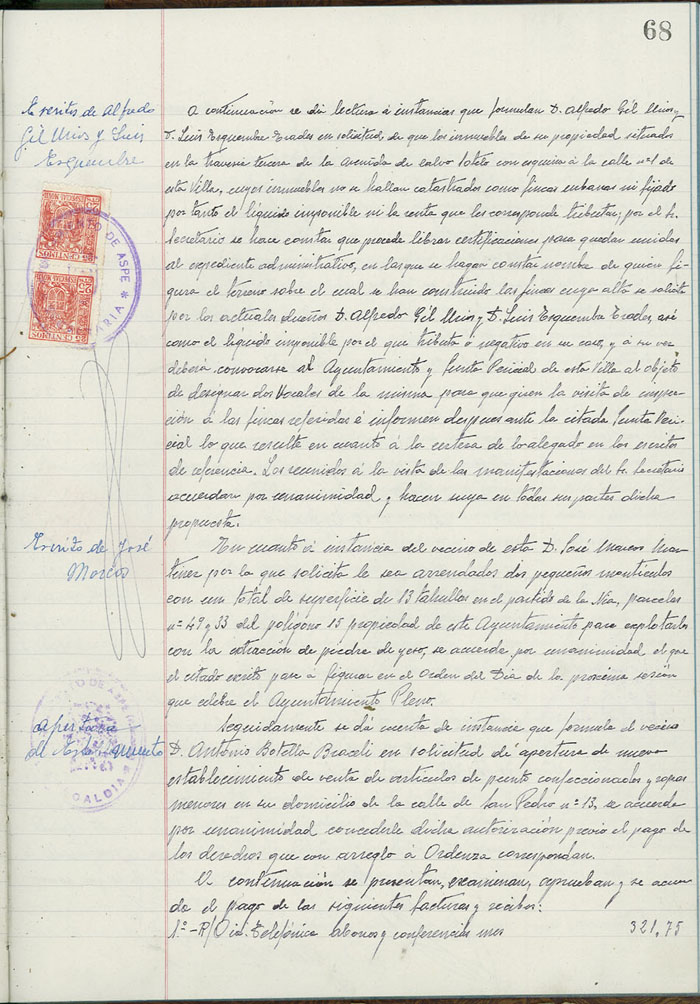 68
Escritos de Alfredo
Gil Mios y Luis
Esquembre
A continuación se dá lectura á instancias que formulan D. Alfredo Gil Mios y
D. Luis Esquembre Erades en solicitud de que los inmuebles de su propiedad situados
en la travesia tercera de la avenida de Calvo Sotelo con esquina á la calle nº 1 de
esta Villa, cuyos inmuebles no se hallan catastrados como fincas urbanas ni fijado
por tanto el líquido imponible ni la renta que les corresponde tributar; por el Sr.
Secretario se hace constar que procede librar certificaciones para quedar unidas
al expediente administrativo, en las que se hagan constar nombre de quien fi-
gura el terreno sobre el cual se han construido las fincas cuya alta se solicita
por los actuales dueños D. Alfredo Gil Mios y D. Luis Esquembre Erades, asi
como el liquido imponible por el que tributa ó negativo en su caso, y á su vez
deberia convocarse al Ayuntamiento y Junta Pericial de esta Villa al objeto
de designar dos Vocales de la misma para que giren la visita de inspec-
ción á las fincas referidas é informen despues ante la citada Junta Peri-
cial lo que resulte en cuanto á la certeza de lo alegado en los escritos
de referencia. Los reunidos á la vista de las manifestaciones del Sr. Secretario
acuerdan por unanimidad y hacen suya en todas sus partes dicha
propuesta.
Escrito de José
Marcos
En cuanto á instancia del vecino de esta D. José Marcos
por la que solicita le sea arrendados dos pequeños montículos
con un total de superficie de 13 tahullas en el partido de la parcelas
nº 49 y 53 del polígono 15 propiedad de este Ayuntamiento para explotarlos
con la extracción de piedra de yeso, se acuerda por unanimidad el que
el citado escrito pase á figurar en el Orden del Dia de la proxima sesión
que celebre el Ayuntamiento Pleno.
Apertura
de Establecimiento
Seguidamente se dá cuenta de instancia que formula el vecino
D. Antonio Botella en solicitud de apertura de nuevo
establecimiento de venta de articulos de punto confeccionados y ropas
menores en su domicilio de la calle de San Pedro nº 13, se acuerda
por unanimidad concederle dicha autorización previo el pago de
los derechos que con arreglo á Ordenza correspondan.
A continuación se presentan, examinan, aprueban y se acuer-
da el pago de las siguientes facturas y recibos:
1º.-R/ Cia. Telefónica abonos y conferencias mes 321,75
25 CENTIMOS
25 CENTIMOS
DE ASPE
ARIA
DE ASPE
ALCALDIA